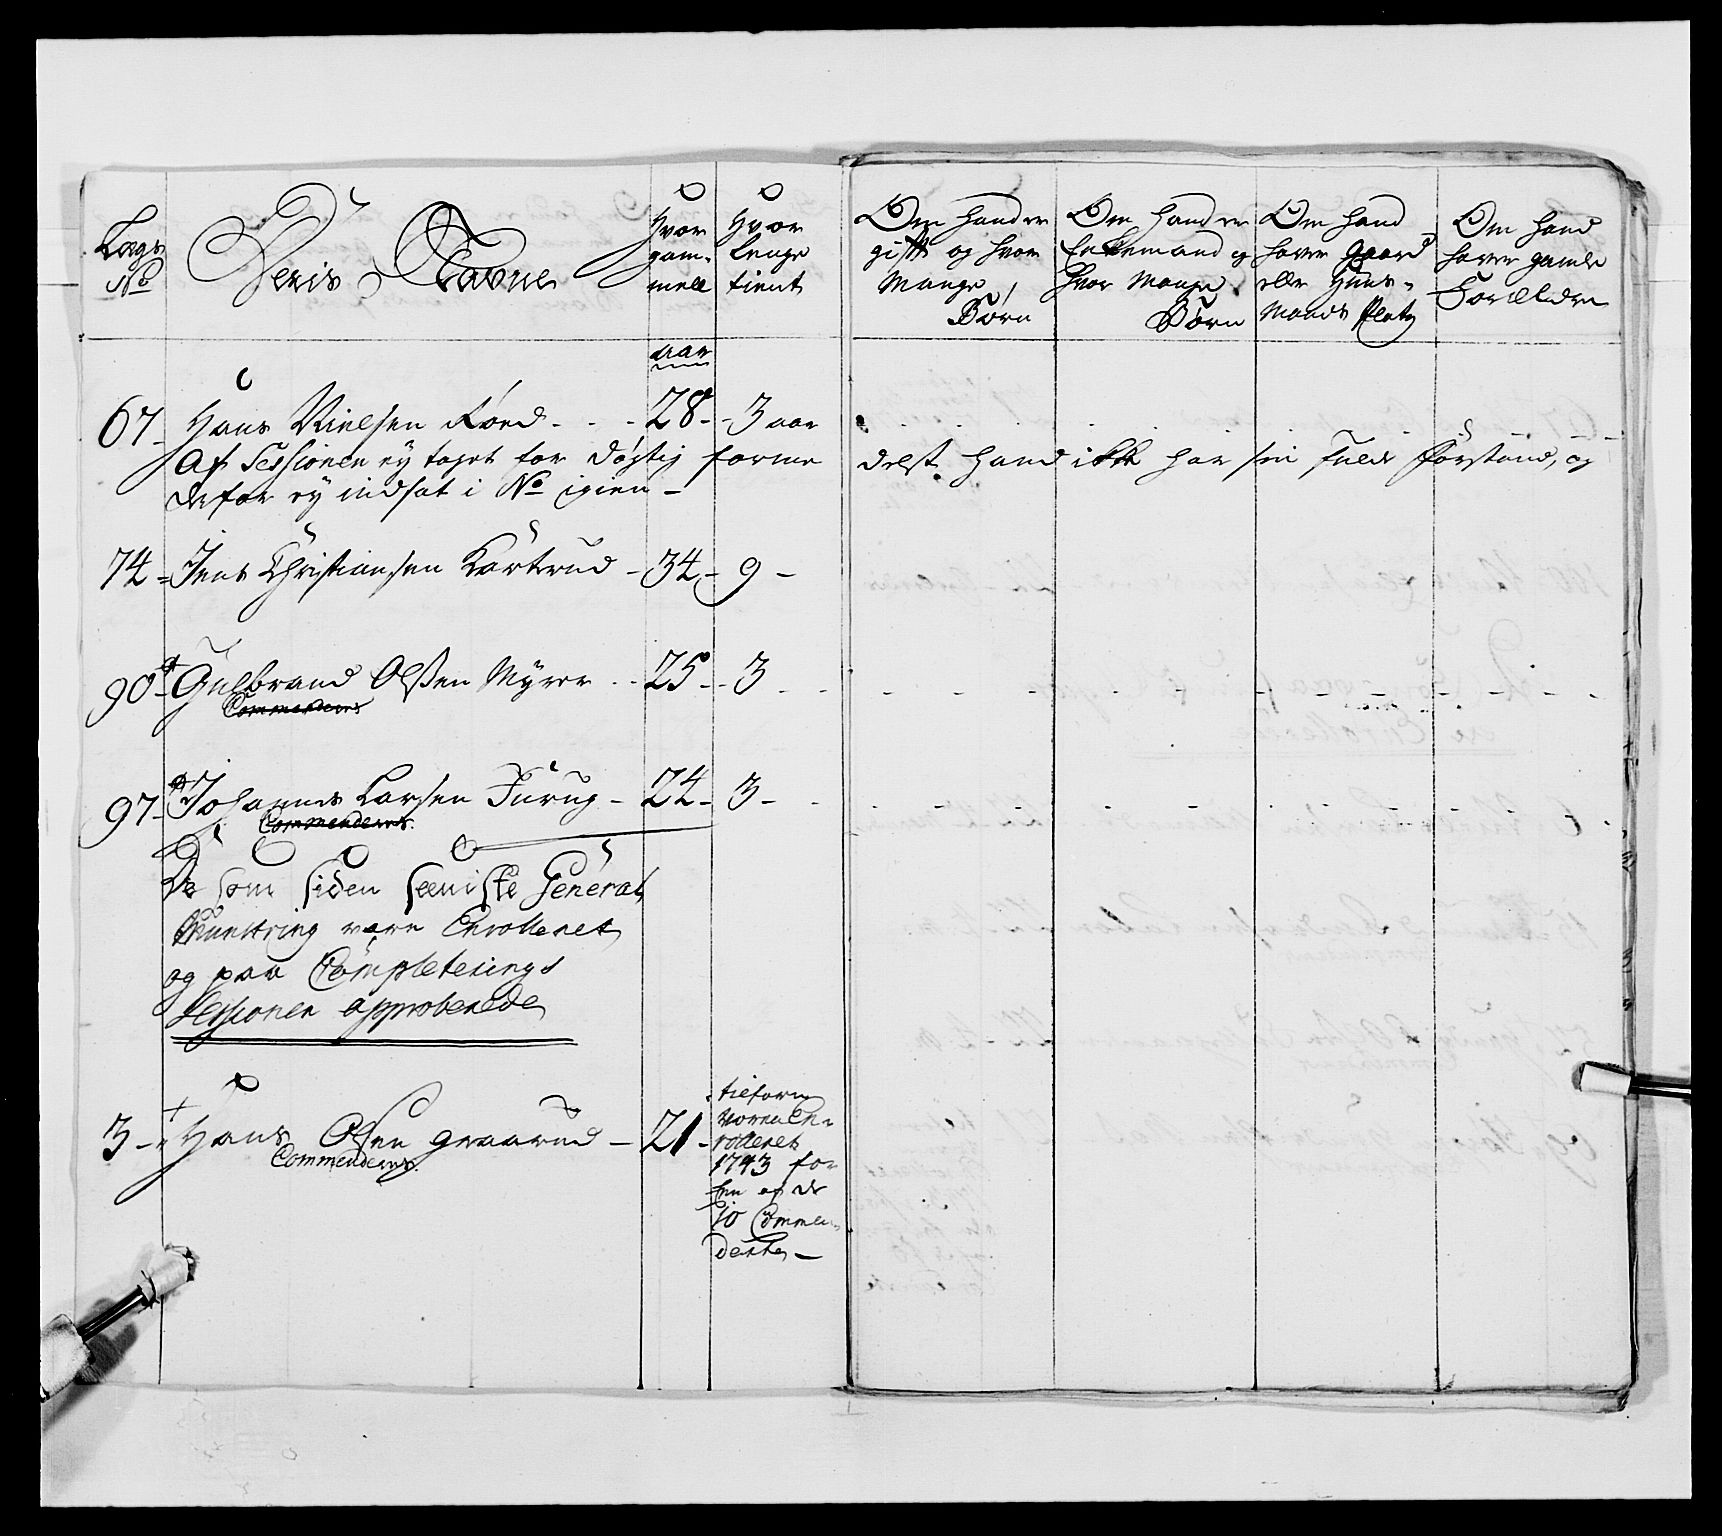 Lægs
No
Deris Navne
Hvor
gam-
mell
Hvor
lenge
tient
Om hand er
gift og hvor
Mange
Børn
Om hand er
Enkemand og
hvor Mange
Børn
Om hand
haver Gaard
eller Huus-
Mands Platz
Om hand
haver gamle
Forældre
aar
67 - Hans Nielsen Røed - - - 28 - - 3 aar
Af Sessionen ey taget for døgtig forme delst hand ikke har sin fulde Forstand, og
derfor ey indsat i No igien -
74 - Jens Christiansen Kortrud - 34 - 9 -
90 - Gulbrand Olsen Myrer - - 25 - - 3 - -
Commanderet
97 - Johannes Larsen Furug - 24 - 3 - -
Commenderet.
De som siden seeniste General
Munstring vare Enrolleret
og paa Completerings
Sessionen approberede
3 - Hans Olsen Graarud - 21 -
Commenderet.
tilforn
voren En-
rolleret
1743 for
Een af de
10 Commen-
derte -